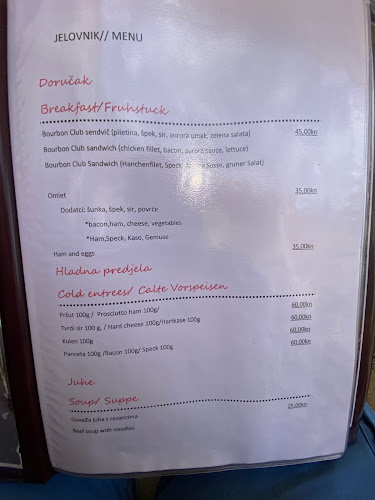 JELOVNIK// MENU
Doručak
Breakfast/Fruhstuck
Bourbon Club sendvič (piletina, špek, sir, aurora umak, zelena salata) 45,00kn
Bourbon Club sandwich (chicken fillet, bacon, aurora sauce, lettuce)
Bourbon Club Sandwich (Hanchenfilet, Speck, Sosse, gruner Salat)
Omlet 35,00kn
Dodatci: šunka, špek, sir, povrće
*bacon,ham, cheese, vegetables
*Ham,Speck, Kase, Gemuse
Ham and eggs 35,00kn
Hladna predjela
Cold entrees/ Calte Vorspeisen
Pršut 100g / Prosciutto ham 100g/ 60,00kn
Tvrdi sir 100 g, / Hard cheese 100g/Hartkase 100g 60,00kn
Kulen 100g 60,00kn
Panceta 100g /Bacon 100g/ Speck 100g 60,00kn
Juhe
Soup/ Suppe
Goveđa juha s rezancima 25,00kn
Beef soup with noodles